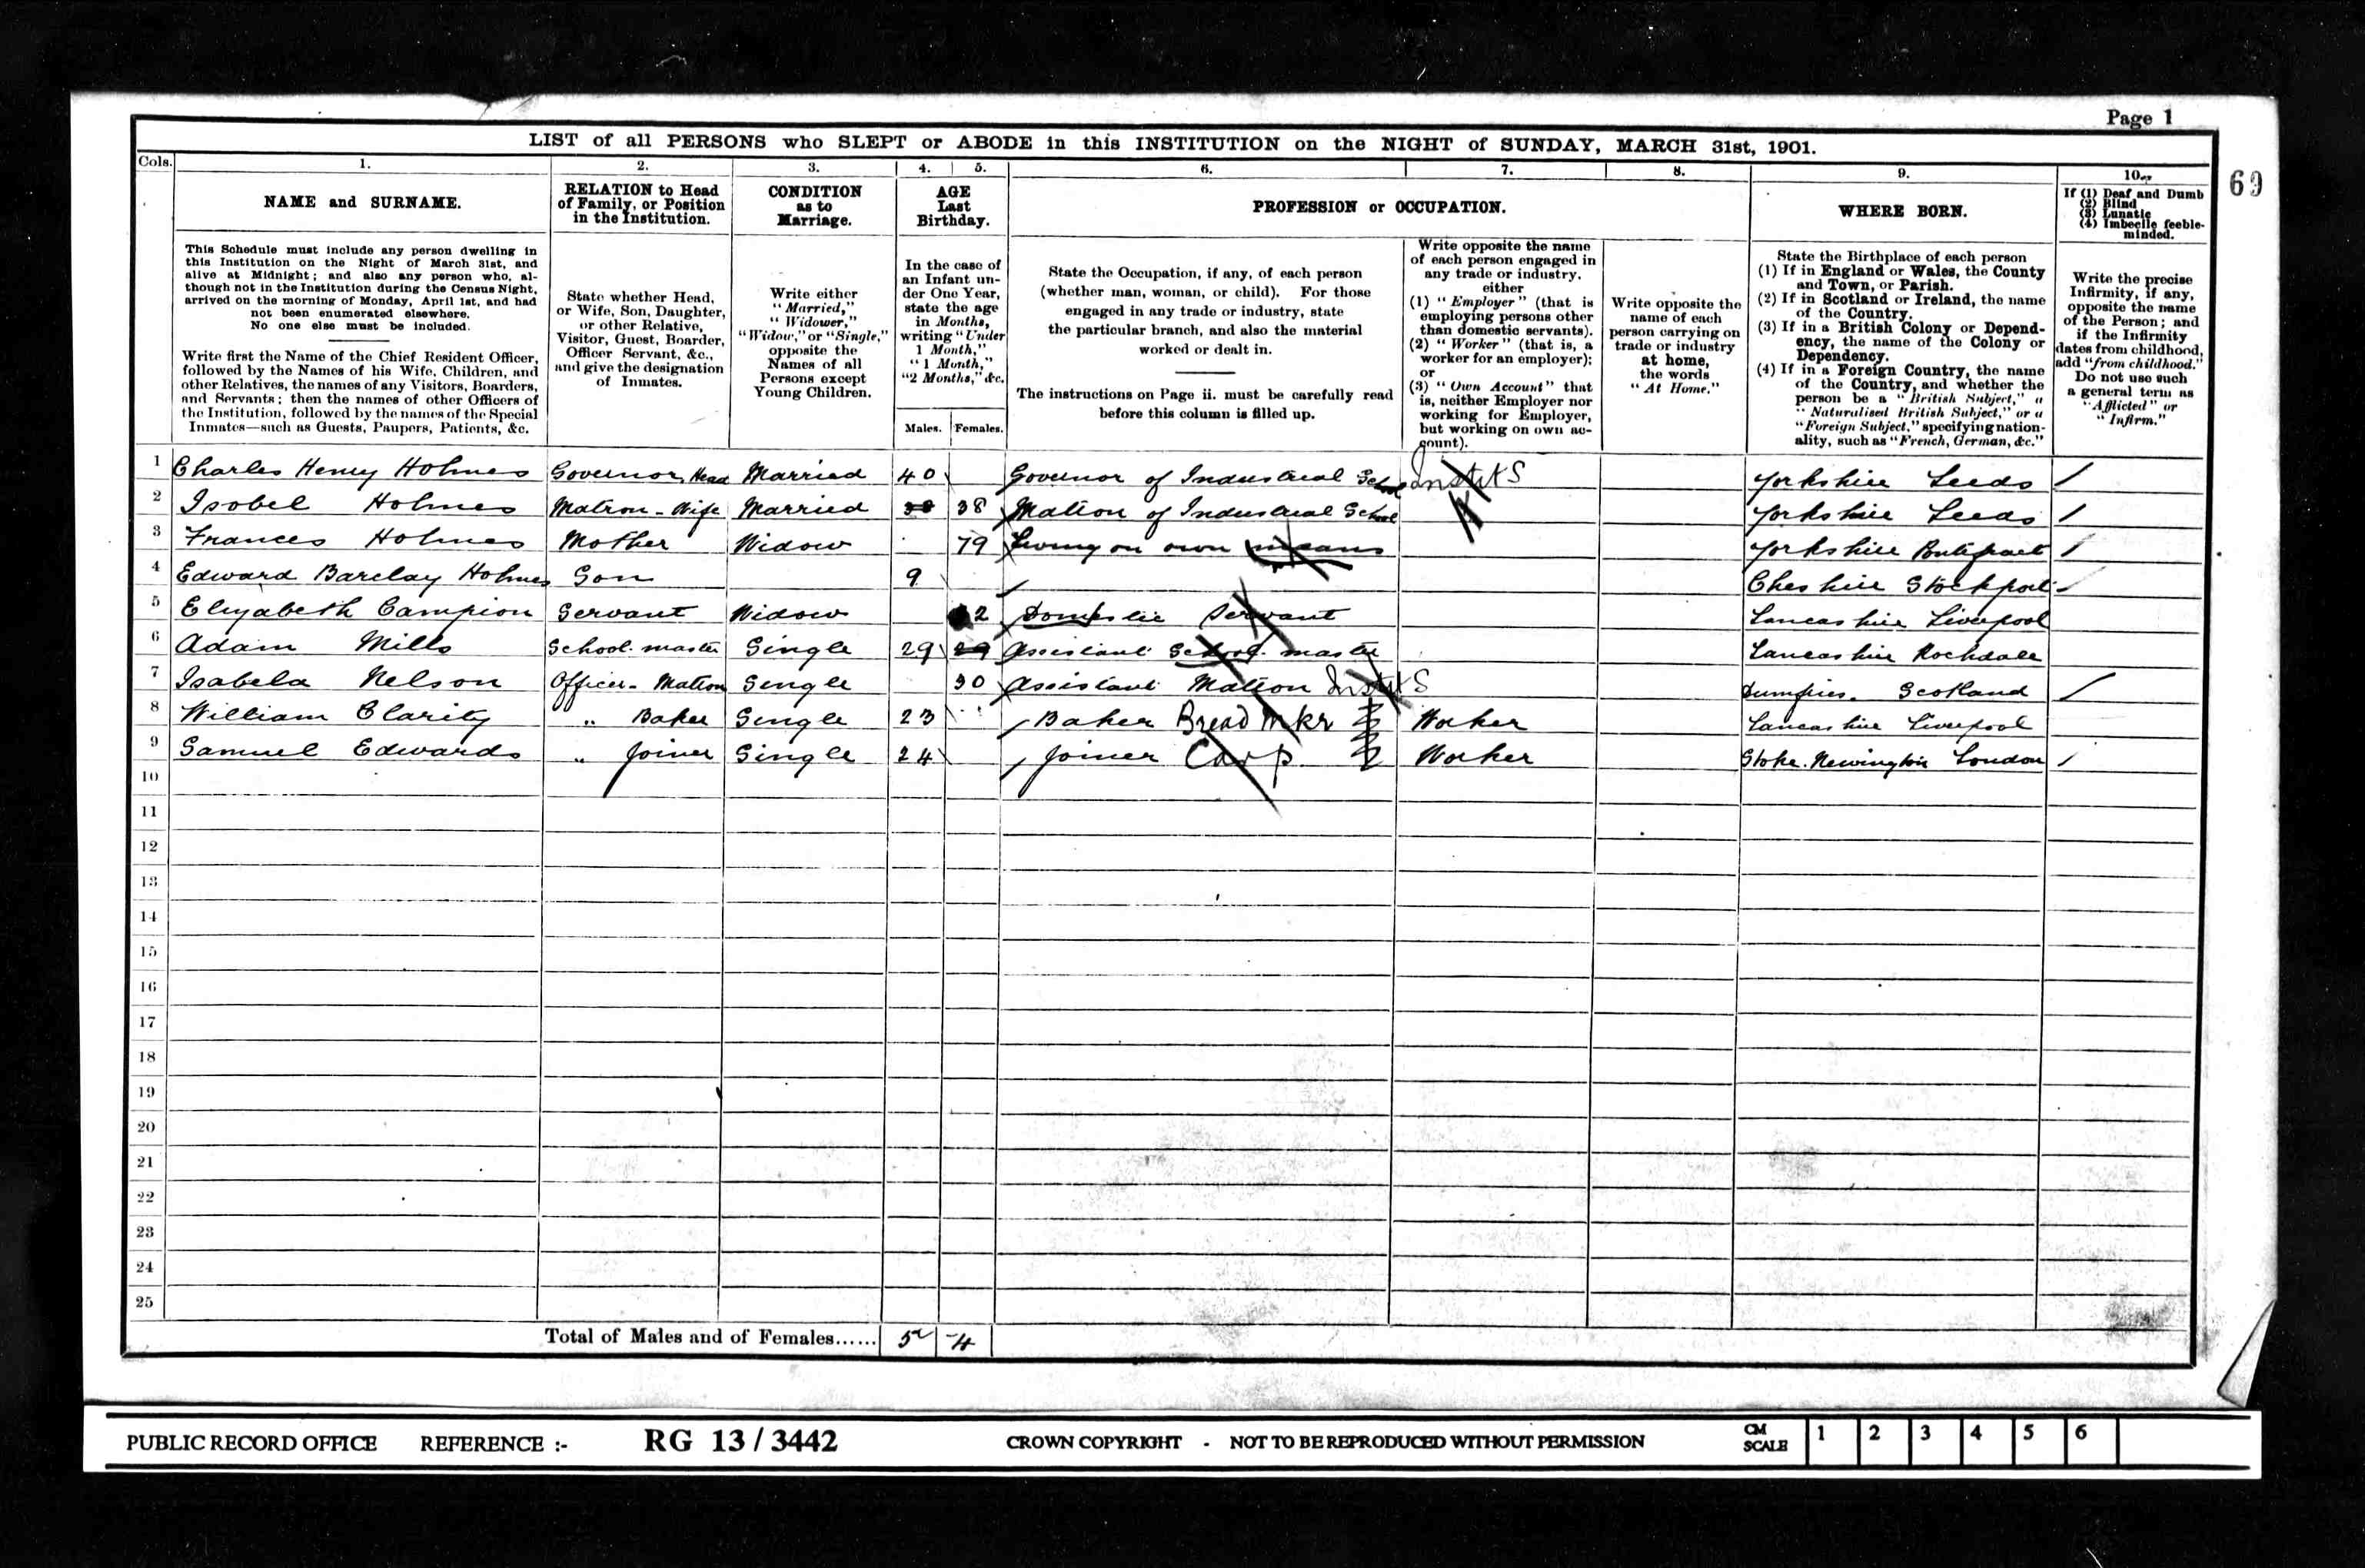 Page 1
LIST of all PERSONS who SLEPT or ABODE in this INSTITUTION on the NIGHT of SUNDAY, MARCH 31st, 1901.
69
Cols. 1. 2. 3. 4. 5. 6. 7. 8. 9. 10.
NAME and SURNAME.
This Schedule must include any person dwelling in
this Institution on the Night of March 31st, and
alive at Midnight; and also any person who, al-
though not in the Institution during the Census Night,
arrived on the morning of Monday, April 1st, and had
not been enumerated elsewhere.
No one else must be included.
Write first the Name of the Chief Resident Officer,
followed by the Names of his Wife, Children, and
other Relatives, the names of any Visitors, Boarders,
and Servants; then the names of other Officers of
the Institution, followed by the names of the Special
Inmates—such as Guests, Paupers, Patients, &c.
RELATION to Head
of Family, or Position
in the Institution.
State whether Head,
or Wife, Son, Daughter,
or other Relative,
Visitor, Guest, Boarder,
Officer Servant, &c.,
and give the designation
of Inmates.
CONDITION
as to
Marriage.
Write either
"Married,"
"Widower,"
"Widow," or "Single,"
opposite the
Names of all
Persons except
Young Children.
AGE
Last
Birthday.
In the case of
an Infant un-
der One Year,
state the age
in Months,
writing "Under
1 Month,"
"1 Month,"
"2 Months," &c.
Males. Females.
PROFESSION or OCCUPATION.
State the Occupation, if any, of each person
(whether man, woman, or child). For those
engaged in any trade or industry, state
the particular branch, and also the material
worked or dealt in.
The instructions on Page ii. must be carefully read
before this column is filled up.
Write opposite the name
of each person engaged in
any trade or industry,
either
(1) "Employer" (that is
employing persons other
than domestic servants).
(2) "Worker" (that is, a
worker for an employer);
or
(3) "Own Account" that
is, neither Employer nor
working for Employer,
but working on own ac-
count).
Write opposite the
name of each
person carrying on
trade or industry
at home,
the words
"At Home."
WHERE BORN.
State the Birthplace of each person
(1) If in England or Wales, the County
and Town, or Parish.
(2) If in Scotland or Ireland, the name
of the Country.
(3) If in a British Colony or Depend-
ency, the name of the Colony or
Dependency.
(4) If in a Foreign Country, the name
of the Country, and whether the
person be a "British Subject," a
"Naturalised British Subject," or a
"Foreign Subject," specifying nation-
ality, such as "French, German, &c."
If (1) Deaf and Dumb
(2) Blind
(3) Lunatic
(4) Imbecile feeble-
minded.
Write the precise
Infirmity, if any,
opposite the name
of the Person; and
if the Infirmity
dates from childhood,
add "from childhood."
Do not use such
a general term as
"Afflicted" or
"Infirm."
1 Charles Henry Holmes Governor, Head Married 40 Governor of Industrial School Instit S Yorkshire Leeds
2 Isobel Holmes Matron - Wife Married 38 38 Matron of Industrial School Yorkshire Leeds
3 Frances Holmes Mother Widow 79 Living on own means Yorkshire Pontefract
4 Edward Barclay Holmes Son 9 Cheshire Stockport
5 Elizabeth Campion Servant Widow 2 Domestic Servant Lancashire Liverpool
6 Adam Mills School. master Single 29 29 Assistant School. master Lancashire Rochdale
7 Isabela Nelson Officer - Matron Single 30 Assistant Matron Instit S Dumfries. Scotland
8 William Clarity " Baker Single 23 Baker Bread Mkr Worker Lancashire Liverpool
9 Samuel Edwards " Joiner Single 24 Joiner Carp Worker Stoke. Newington London
10
11
12
13
14
15
16
17
18
19
20
21
22
23
24
25
Total of Males and of Females...... 5 4
PUBLIC RECORD OFFICE REFERENCE :- RG 13 / 3442 CROWN COPYRIGHT - NOT TO BE REPRODUCED WITHOUT PERMISSION CM SCALE 1 2 3 4 5 6